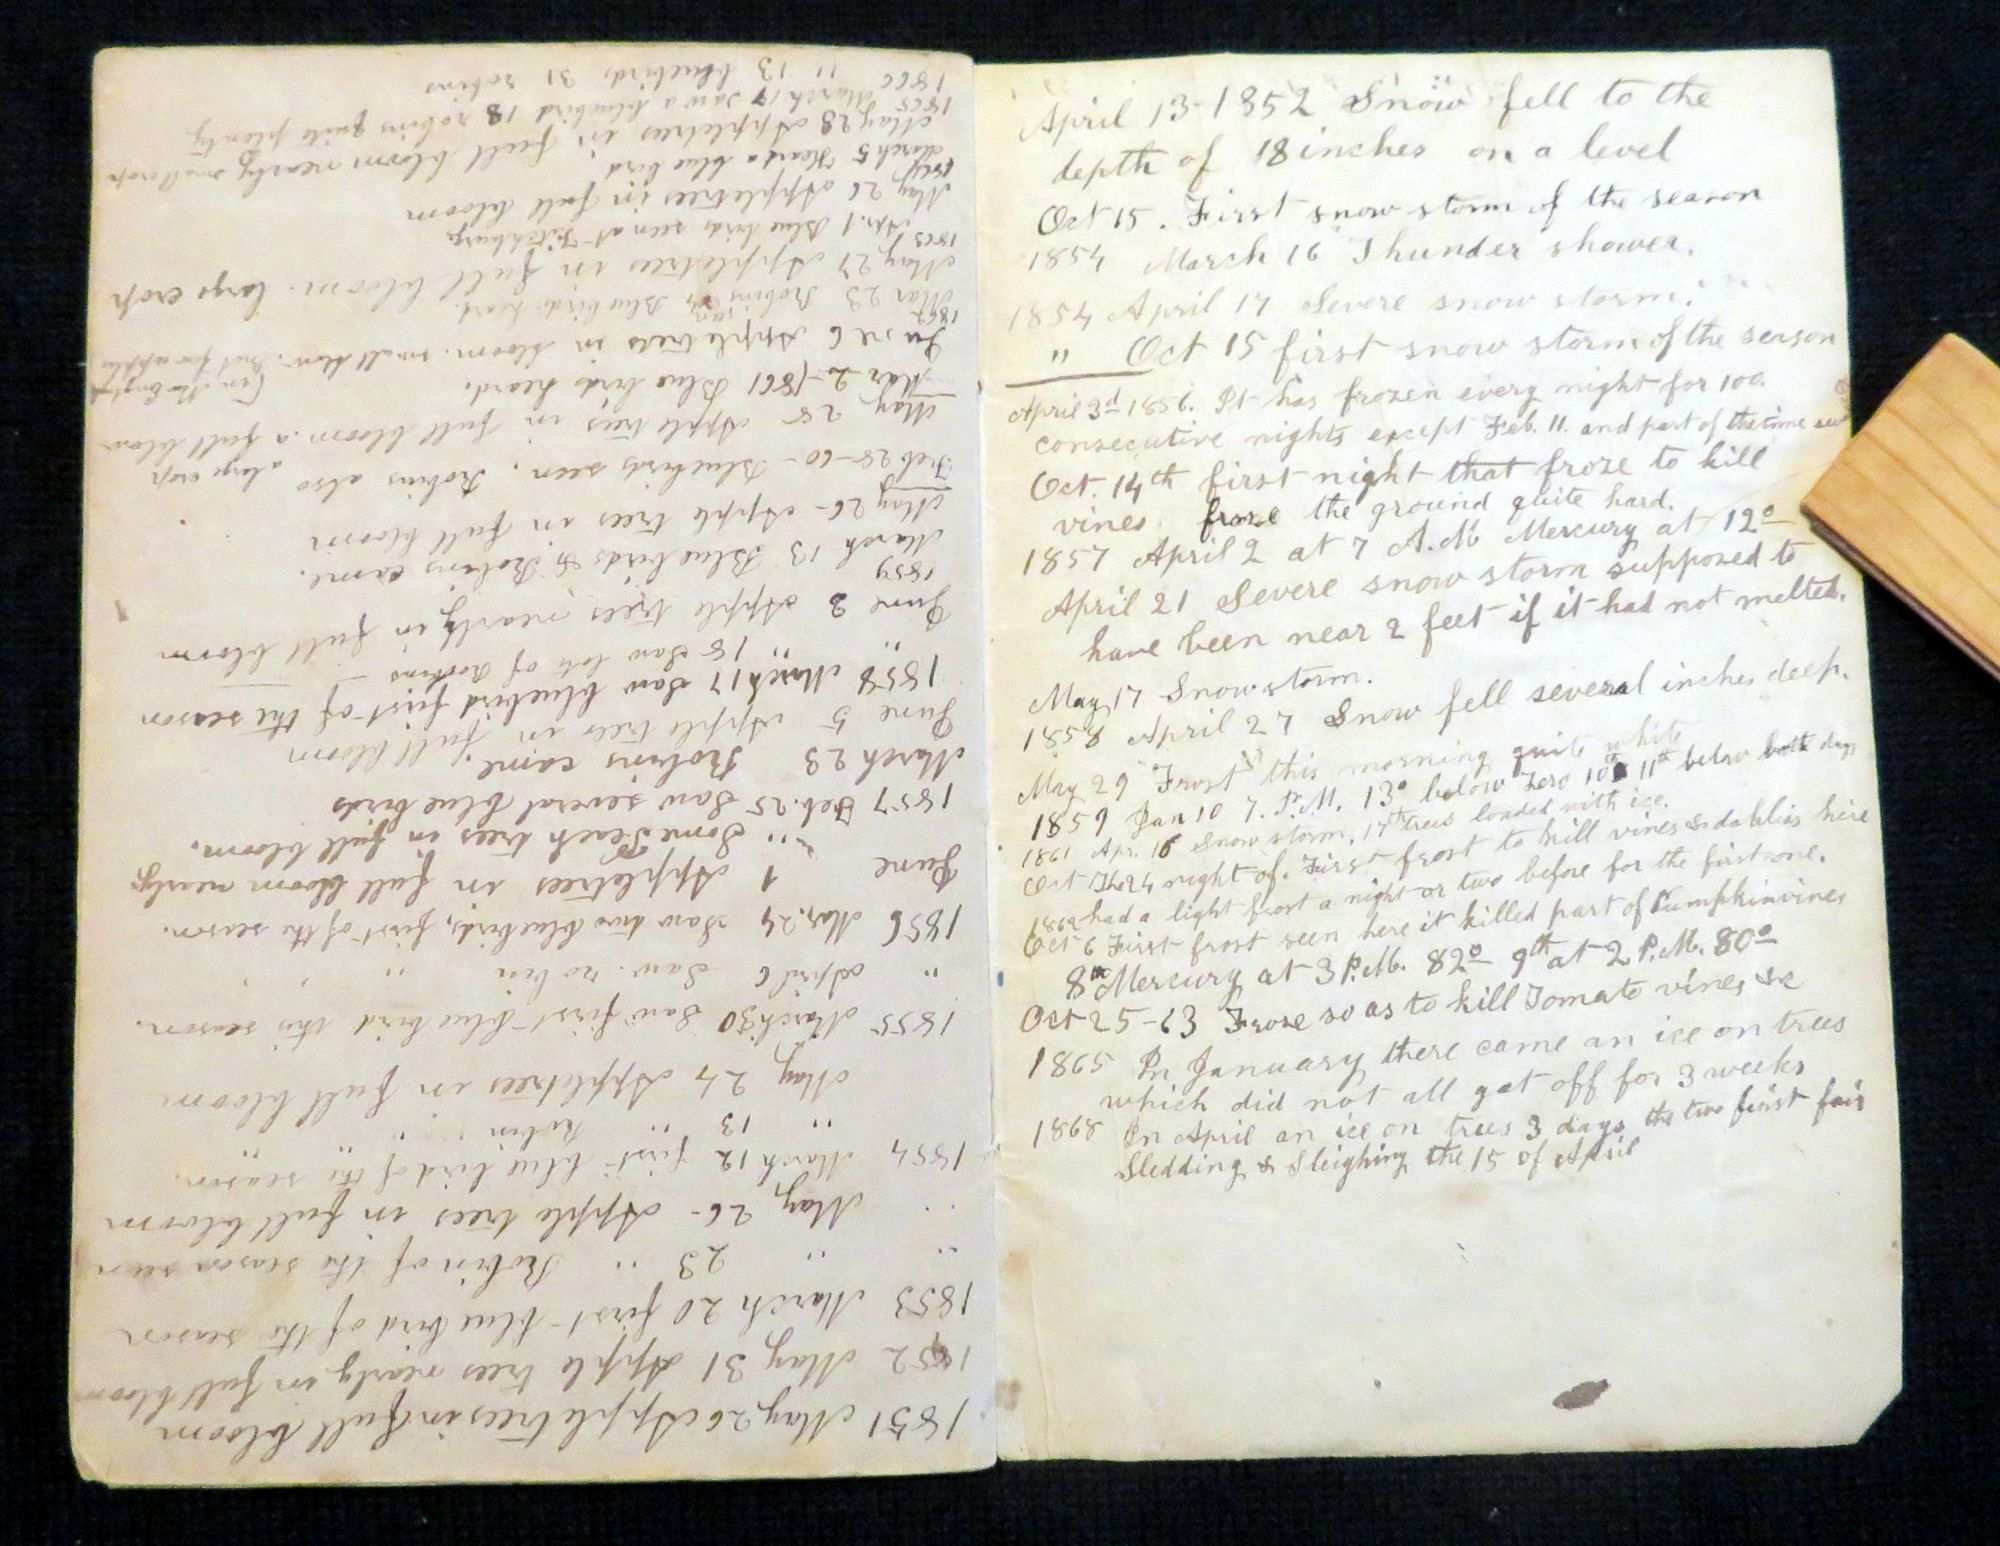 1851 May 26 Apple trees in full bloom
1852 May 31 Apple trees nearly in full bloom
1853 March 20 first blue bird of the season
" " 23 " Robin of the season seen
" May 26 - Apple trees in full bloom
1854 March 12 first blue bird of the season.
" 13 " Robin " " "
May 24 Appletrees in full bloom.
1855 March 30 Saw first blue bird this season.
" April 6 Saw robin " " "
1856 Mar. 24 Saw two bluebirds, first of the season.
June 1 Appletrees in full bloom nearly.
" Some Peach trees in full bloom.
1857 Feb. 25 Saw several blue birds
March 23 Robins came.
June 5 Apple trees in full bloom
1858 March 17 Saw bluebird first of the season
" " 18 Saw lots of Robins
June 3 Apple trees nearly in full bloom
1859
March 13 Blue birds & Robins came.
May 26 - Apple trees in full bloom
Feb 28-60 - Bluebirds seen. Robins also a large crop
May 28 Apple trees in full bloom. a full blow
Mar 2-1861 Blue birds heard.
June 6 Apple trees in bloom. small blow. but few apples
1862
Mar 23 Robins seen Blue birds heard.
May 27 Appletrees in full bloom. large crop
1863 Apr. 1 Blue birds seen at Fitchburg
May 26 Appletrees in full bloom
1864
March 5 Heard a blue bird.
May 28 Appletrees in full bloom nearly small crop
1865 March 17 Saw a bluebird 18 robins quite plenty
1866 " 13 bluebirds 31 robins
April 13-1852 Snow fell to the
depth of 18 inches on a level
Oct 15. First snow storm of the season
1854 March 16 Thunder shower.
1854 April 17 Severe snow storm.
" Oct 15 first snow storm of the season
April 3d 1856. It has frozen every night for 100.
consecutive nights except Feb. 11. and part of the time
Oct. 14th first night that froze to kill
vines froze the ground quite hard.
1857 April 2 at 7 A.M Mercury at 12°
April 21 Severe snow storm supposed to
have been near 2 feet if it had not melted.
May 17 Snow storm.
1858 April 27 Snow fell several inches deep.
May 29 Frost this morning quite white
1859 Jan 10 7. P.M. 13° below Zero 10th 11th below both days
1861 Apr. 16 Snow storm. 17th trees loaded with ice.
Oct The 24 night of. First frost to kill vines & dahlias here
had a light frost a night or two before for the first one.
1862
Oct 6 First frost seen here it killed part of Pumpkin vines
8th Mercury at 3 P.M. 82° 9th at 2 P.M. 80°
Oct 25-63 Froze so as to kill Tomato vines &c
1865 In January there came an ice on trees
which did not all get off for 3 weeks
1868 In April an ice on trees 3 days the two first fair
Sledding & Sleighing the 15 of April